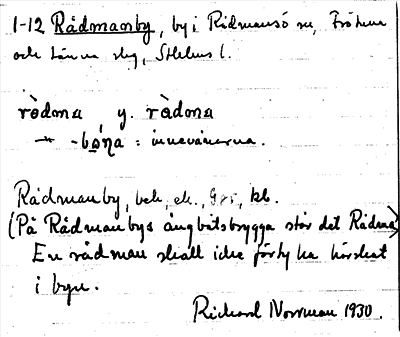 1-12 Rådmanby, by i Rådmansö sn, Fröhuna
och Länna slg, Sthlms l.
rödma y. rådma
-"- -bǫna : innevånarna.
Rådmanby, bek, ek., kb.
(På Rådmanbys ångbåtsbrygga står det Rådma)
En rådman skall icke förty ha
i byn.
Richard Norrman 1930.